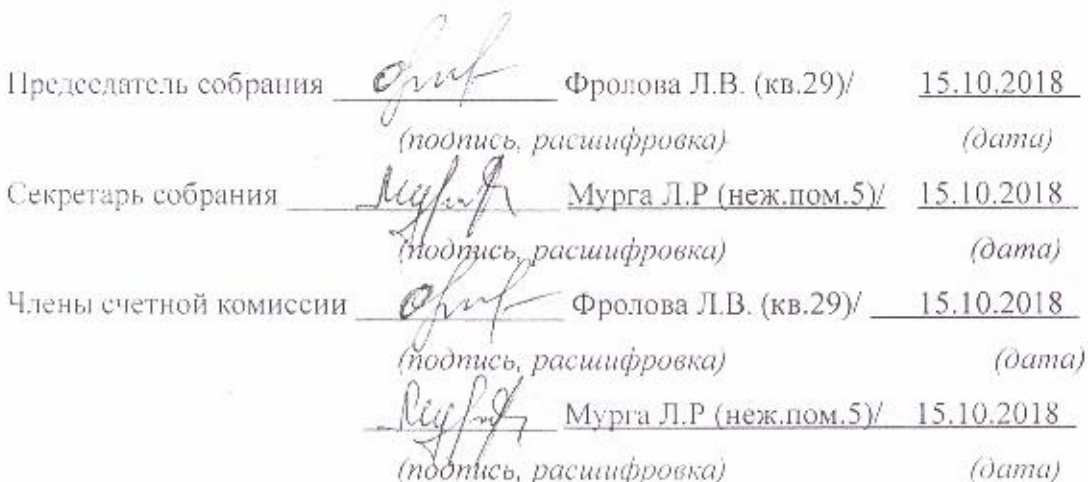 Председатель собрания Фролова Л.В. (кв.29)/ 15.10.2018
(подпись, расшифровка) (дата)
Секретарь собрания Мурга Л.Р (неж.пом.5)/ 15.10.2018
(подпись, расшифровка) (дата)
Члены счетной комиссии Фролова Л.В. (кв.29)/ 15.10.2018
(подпись, расшифровка) (дата)
Мурга Л.Р (неж.пом.5)/ 15.10.2018
(подпись, расшифровка) (дата)